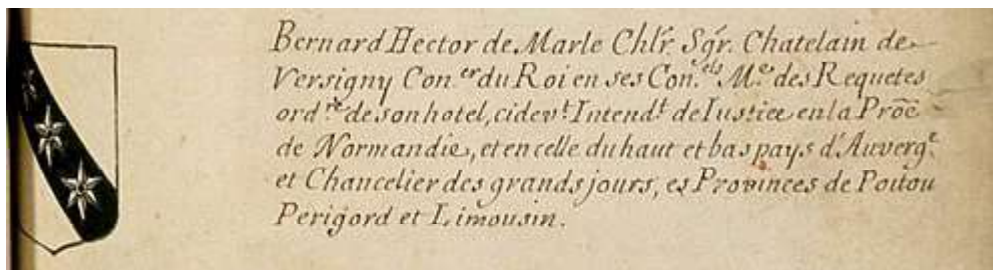 Bernard Hector de Marle Chlr. Sgr. Chatelain de
Versigny Con.er du Roi en ses Con.els M.e des Requetes
ord.re de son hotel, cidev.t Intend.t de Iustice en la Proc̄e
de Normandie, et en celle du haut et bas pays d'Auverg.e
et Chancelier des grands jours, es Provinces de Poitou
Perigord et Limousin.